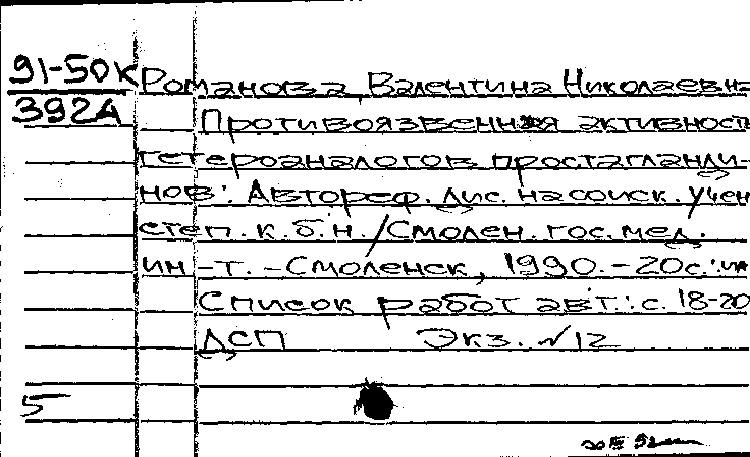 91-50К Романова, Валентина Николаевна
392А Противоязвенная активност
гетероаналогов простагланди-
нов: Автореф. дис. на соиск. учен
степ. к.б.н. / Смолен. гос. мед.
ин-т. - Смоленск, 1990. - 20с.: ил
Список работ авт.: с. 18-20
ДСП Экз. №12
5